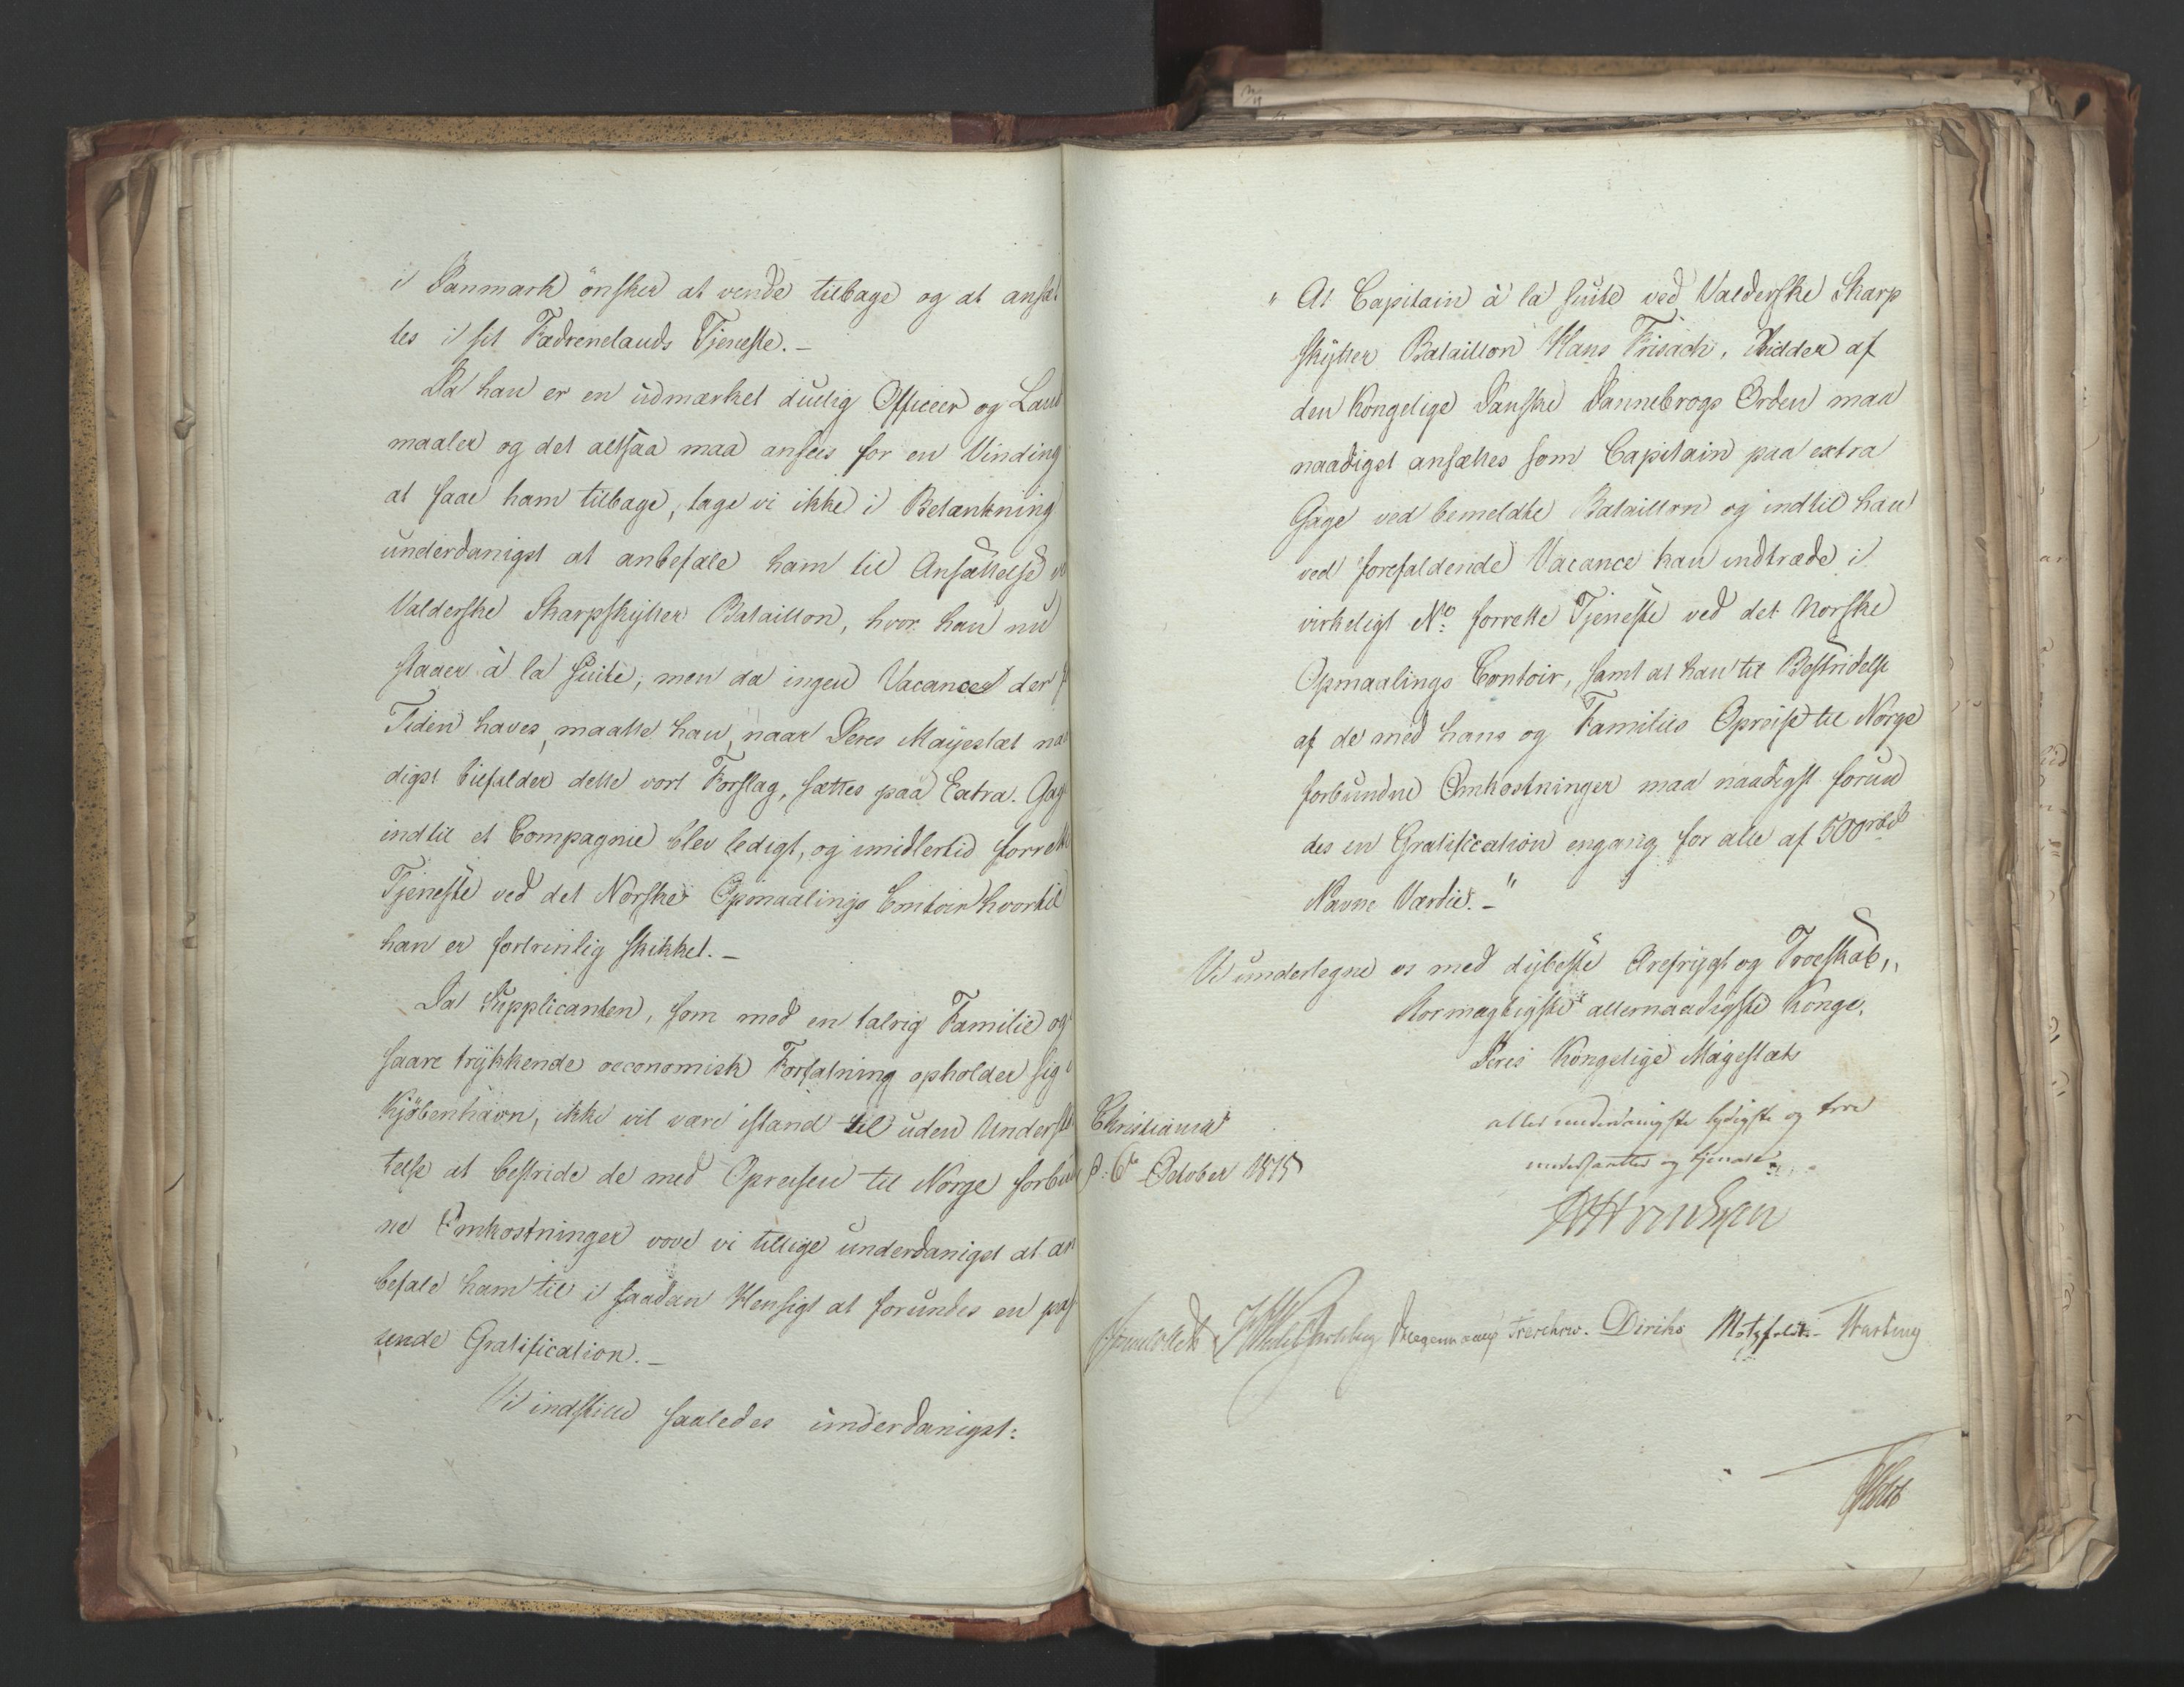 i Danmark önsker at vende tilbage og at ansæt
tes i sit Fædrenelands Tjeneste. –
Da han er en udmærket duelig Officeer og Land
maaler og det altsaa maa ansees for en Vinding
at faae ham tilbage, tage vi ikke i Betænkning
underdanigst at anbefale ham til Ansættelse ve
Valderske Skarpskytter Bataillon, hvor han nu
staaer à la Suite, men da ingen Vacancer der f
Tiden haves, maatte han, naar Deres Majestæt naa
digst bifalder dette vort Forslag, sættes paa Extra. Gage
indtil et Compagnie blev ledigt, og imidlertid forrette
Tjeneste ved det Norske Opmaalings Contoir hvortil
han er fortrinlig skikket. –
Da Supplicanten, som med en talrig Familie og
saare trykkende oeconomisk Forfatning opholder sig i
Kjöbenhavn, ikke vil være istand til uden Understöt
telse at bestride de med Opreisen til Norge forbund
ne Omkostninger vove vi tillige underdanigst at an
befale ham til i saadan Hensigt at forundes en pas
sende Gratification. –
Vi indstille saaledes underdanigst:
" At Capitain à la suite ved Valderske Skarp
skytter Bataillon Hans Frisach, Ridder af
den Kongelige Danske Dannebrogs Orden maa
naadigst ansættes som Capitain paa extra
Gage ved bemeldte Bataillon og indtil han
ved forefaldende Vacance kan indtræde i
virkeligt No: forrette Tjeneste ved det Norske
Opmaalings Contoir, samt at han til Bestridelse
af de med hans og Families Opreise til Norge
forbundne Omkostninger maa naadigst forun
des en Gratification engang for alle af 500 rbd
Navne Værdie. – "
Vi undertegne os med dybeste Ærefrygt og Troeskab,
Stormægtigste allernaadigste Konge,
Deres Kongelige Majestæts
allerunderdanigste lydigste og troe
undersaatter og tjenere
Christiania
d. 6te October 1815
Sommerhielm Wedel Jarlsberg Hegermann Treschow. Diriks Motzfeldt – Hasting
Holst